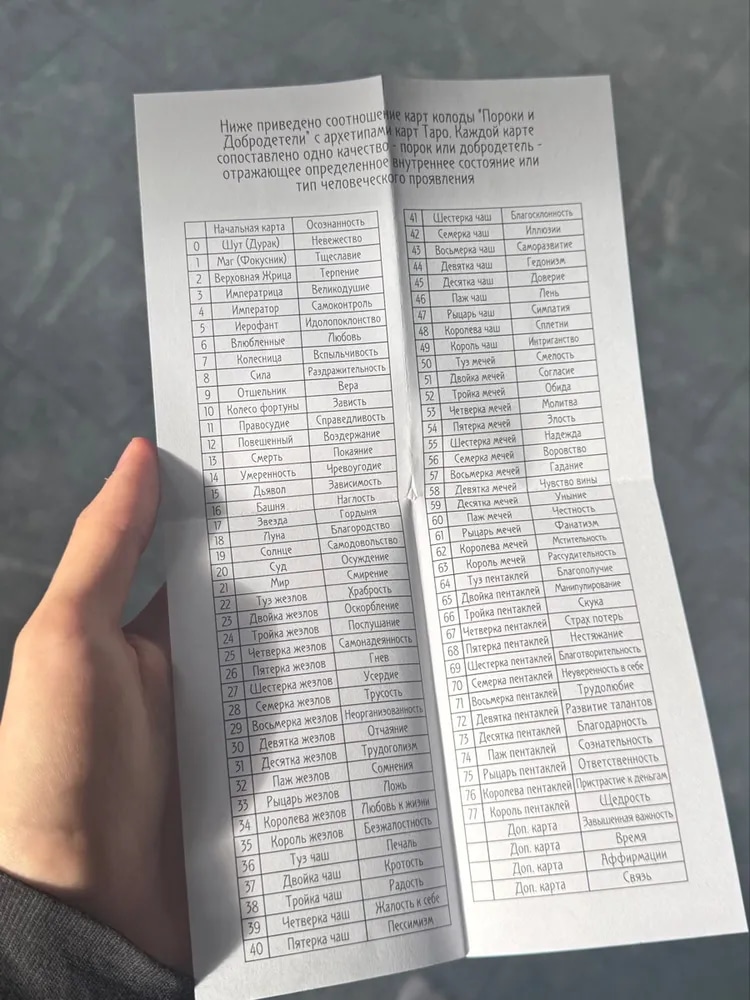 Ниже приведено соотношение карт колоды "Пороки и
Добродетели" с архетипами карт Таро. Каждой карте
сопоставлено одно качество - порок или добродетель -
отражающее определенное внутреннее состояние или
тип человеческого проявления
Начальная карта Осознанность
0 Шут (Дурак) Невежество
1 Маг (Фокусник) Тщеславие
2 Верховная Жрица Терпение
3 Императрица Великодушие
4 Император Самоконтроль
5 Иерофант Идолопоклонство
6 Влюбленные Любовь
7 Колесница Вспыльчивость
8 Сила Раздражительность
9 Отшельник Вера
10 Колесо фортуны Зависть
11 Правосудие Справедливость
12 Повешенный Воздержание
13 Смерть Покаяние
14 Умеренность Чревоугодие
15 Дьявол Зависимость
16 Башня Наглость
17 Звезда Гордыня
18 Луна Благородство
19 Солнце Самодовольство
20 Суд Осуждение
21 Мир Смирение
22 Туз жезлов Храбрость
23 Двойка жезлов Оскорбление
24 Тройка жезлов Послушание
25 Четверка жезлов Самонадеянность
26 Пятерка жезлов Гнев
27 Шестерка жезлов Усердие
28 Семерка жезлов Трусость
29 Восьмерка жезлов Неорганизованность
30 Девятка жезлов Отчаяние
31 Десятка жезлов Трудоголизм
32 Паж жезлов Сомнения
33 Рыцарь жезлов Ложь
34 Королева жезлов Любовь к жизни
35 Король жезлов Безжалостность
36 Туз чаш Печаль
37 Двойка чаш Кротость
38 Тройка чаш Радость
39 Четверка чаш Жалость к себе
40 Пятерка чаш Пессимизм
41 Шестерка чаш Благосклонность
42 Семерка чаш Иллюзии
43 Восьмерка чаш Саморазвитие
44 Девятка чаш Гедонизм
45 Десятка чаш Доверие
46 Паж чаш Лень
47 Рыцарь чаш Симпатия
48 Королева чаш Сплетни
49 Король чаш Интриганство
50 Туз мечей Смелость
51 Двойка мечей Согласие
52 Тройка мечей Обида
53 Четверка мечей Молитва
54 Пятерка мечей Злость
55 Шестерка мечей Надежда
56 Семерка мечей Воровство
57 Восьмерка мечей Гадание
58 Девятка мечей Чувство вины
59 Десятка мечей Уныние
60 Паж мечей Честность
61 Рыцарь мечей Фанатизм
62 Королева мечей Мстительность
63 Король мечей Рассудительность
64 Туз пентаклей Благополучие
65 Двойка пентаклей Манипулирование
66 Тройка пентаклей Скука
67 Четверка пентаклей Страх потерь
68 Пятерка пентаклей Нестяжание
69 Шестерка пентаклей Благотворительность
70 Семерка пентаклей Неуверенность в себе
71 Восьмерка пентаклей Трудолюбие
72 Девятка пентаклей Развитие талантов
73 Десятка пентаклей Благодарность
74 Паж пентаклей Сознательность
75 Рыцарь пентаклей Ответственность
76 Королева пентаклей Пристрастие к деньгам
77 Король пентаклей Щедрость
Доп. карта Завышенная важность
Доп. карта Время
Доп. карта Аффирмации
Доп. карта Связь